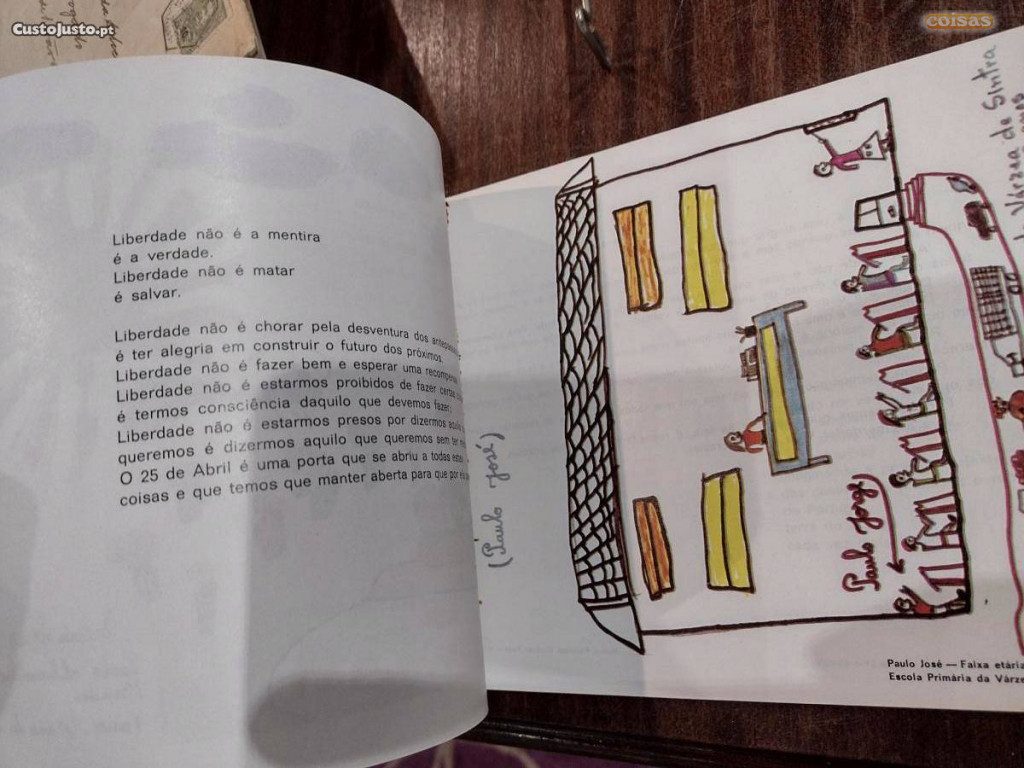 CustoJusto.pt
coisas
Liberdade não é a mentira
é a verdade.
Liberdade não é matar
é salvar.
Liberdade não é chorar pela desventura dos
é ter alegria em construir o futuro dos próximos.
Liberdade não é fazer bem e esperar uma
Liberdade não é estarmos proibidos de fazer certas
é termos consciência daquilo que devemos fazer;
Liberdade não é estarmos presos por dizermos aquilo
queremos é dizermos aquilo que queremos sem ter
O 25 de Abril é uma porta que se abriu a todas estas
coisas e que temos que manter aberta para que por
(Paulo José)
Paulo Jorge
Várzea de Sintra
Paulo José — Faixa etária
Escola Primária da